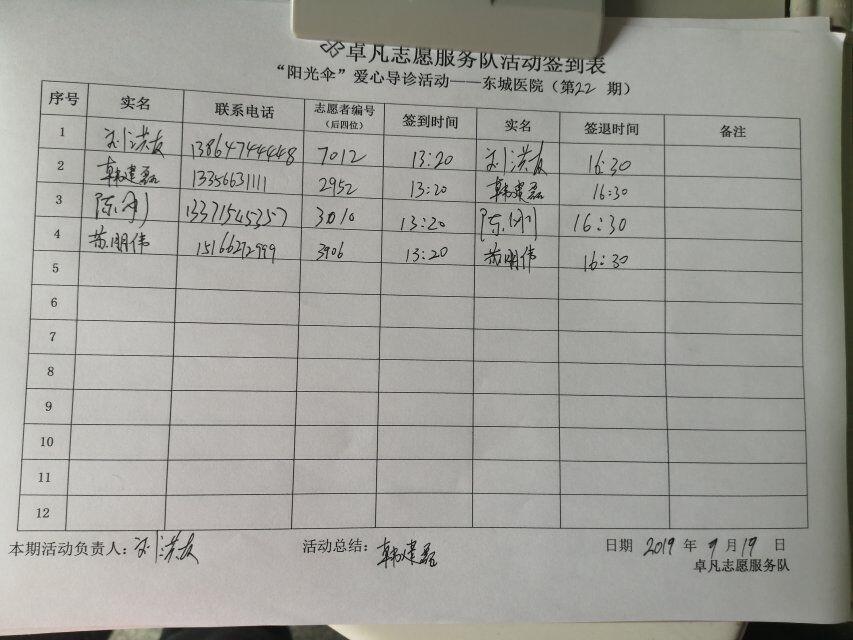 卓凡志愿服务队活动签到表
“阳光伞”爱心导诊活动——东城医院（第22 期）
序号 实名 联系电话 志愿者编号（后四位） 签到时间 实名 签退时间 备注
1 刘洪友 13864744448 7012 13:20 刘洪友 16:30
2 韩建磊 13356631111 2952 13:20 韩建磊 16:30
3 陈刚 13371545357 3010 13:20 陈刚 16:30
4 苏明伟 15166292999 3906 13:20 苏明伟 16:30
5
6
7
8
9
10
11
12
本期活动负责人：刘洪友 活动总结：韩建磊 日期 2019 年 9 月 19 日
卓凡志愿服务队